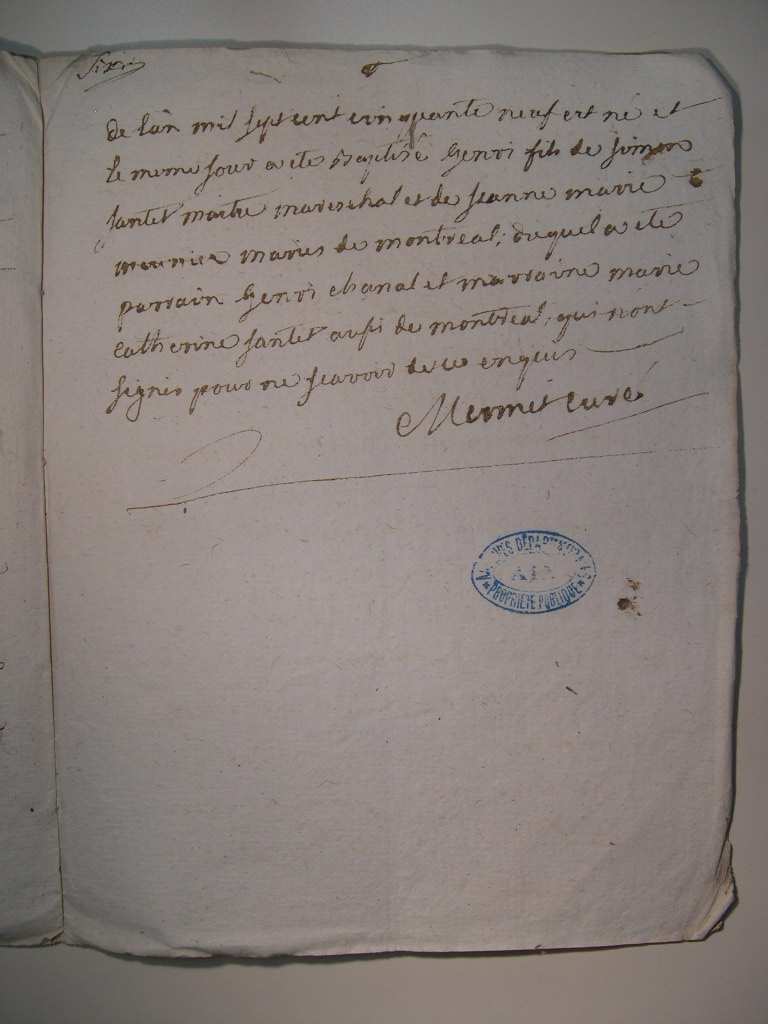 Six
de lan mil sept cent cinquante neuf est né et
le meme jour a ete Baptisé henri fils de simon
jantet maitre mareschal et de jeanne marie
meunier mariés de montreal; duquel a ete
parrain henri chanal et marraine marie
catherine jantet aussi de montreal, qui nont
signés pour ne scavoir de ce enquis
Mermet curé
ARCHIVES DÉPARTEMENTALES
AIN
PROPRIÉTÉ PUBLIQUE